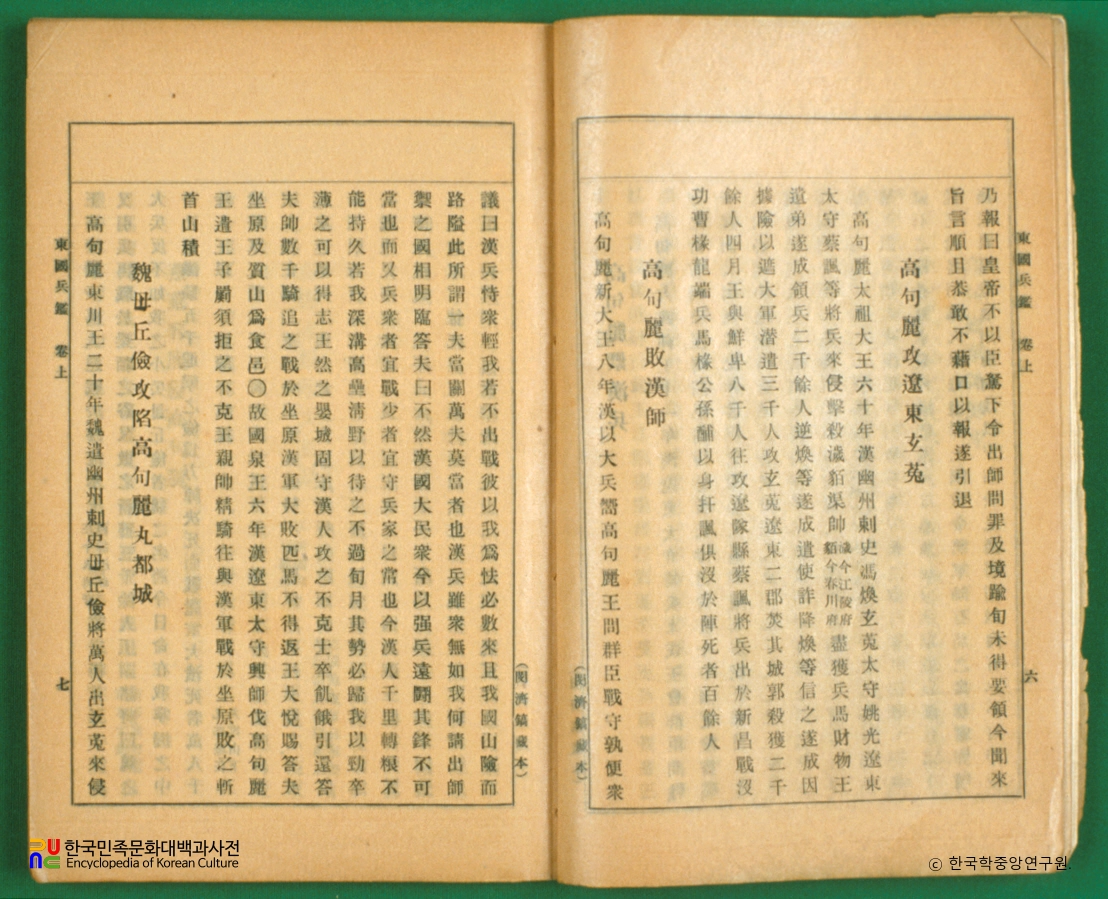 東國兵鑑 卷上
六
乃報曰皇帝不以臣駑下令出師問罪及境踰旬未得要領今聞來
旨言順且恭敢不藉口以報遂引退
高句麗攻遼東玄菟
高句麗太祖大王六十年漢幽州刺史馮煥玄菟太守姚光遼東
太守蔡諷等將兵來侵擊殺濊貊渠帥濊今江陵府貊今春川府盡獲兵馬財物王
遣弟遂成領兵二千餘人逆煥等遂成遣使詐降煥等信之遂成因
據險以遮大軍潛遣三千人攻玄菟遼東二郡焚其城郭殺獲二千
餘人四月王與鮮卑八千人往攻遼隊縣蔡諷將兵出於新昌戰沒
功曹椽龍端兵馬椽公孫酺以身扞諷俱沒於陣死者百餘人
高句麗敗漢師
高句麗新大王八年漢以大兵嚮高句麗王問群臣戰守孰便衆
(閔濟鎬藏本)
(閔濟鎬藏本)
議曰漢兵恃衆輕我若不出戰彼以我爲怯必數來且我國山險而
路隘此所謂一夫當關萬夫莫當者也漢兵雖衆無如我何請出師
禦之國相明臨答夫曰不然漢國大民衆今以强兵遠鬪其鋒不可
當也而又兵衆者宜戰少者宜守兵家之常也今漢人千里轉粮不
能持久若我深溝高壘淸野以待之不過旬月其勢必歸我以勁卒
薄之可以得志王然之嬰城固守漢人攻之不克士卒飢餓引還答
夫帥數千騎追之戰於坐原漢軍大敗匹馬不得返王大悅賜答夫
坐原及質山爲食邑〇故國泉王六年漢遼東太守興師伐高句麗
王遣王子罽須拒之不克王親帥精騎往與漢軍戰於坐原敗之斬
首山積
魏毌丘儉攻陷高句麗丸都城
高句麗東川王二十年魏遣幽州刺史毌丘儉將萬人出玄菟來侵
東國兵鑑 卷上
七
한국민족문화대백과사전
Encyclopedia of Korean Culture
ⓒ 한국학중앙연구원.